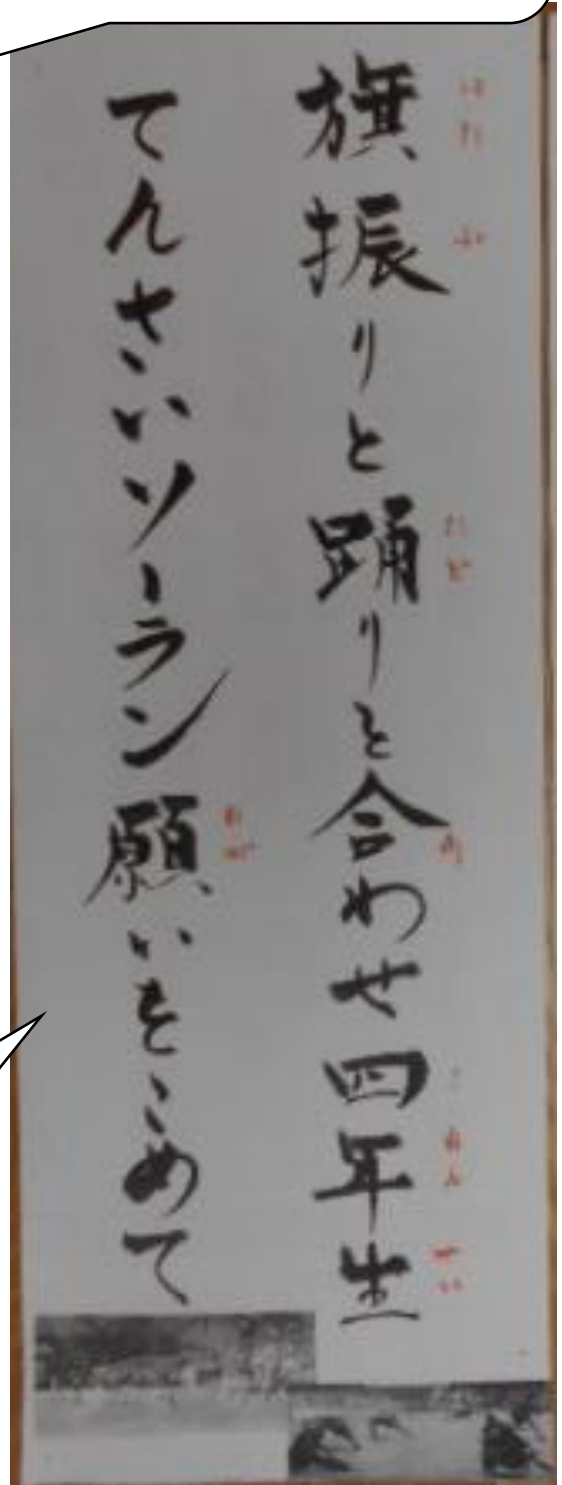 旗振りと踊りと合わせ四年生
てんさいソーラン願いをこめて